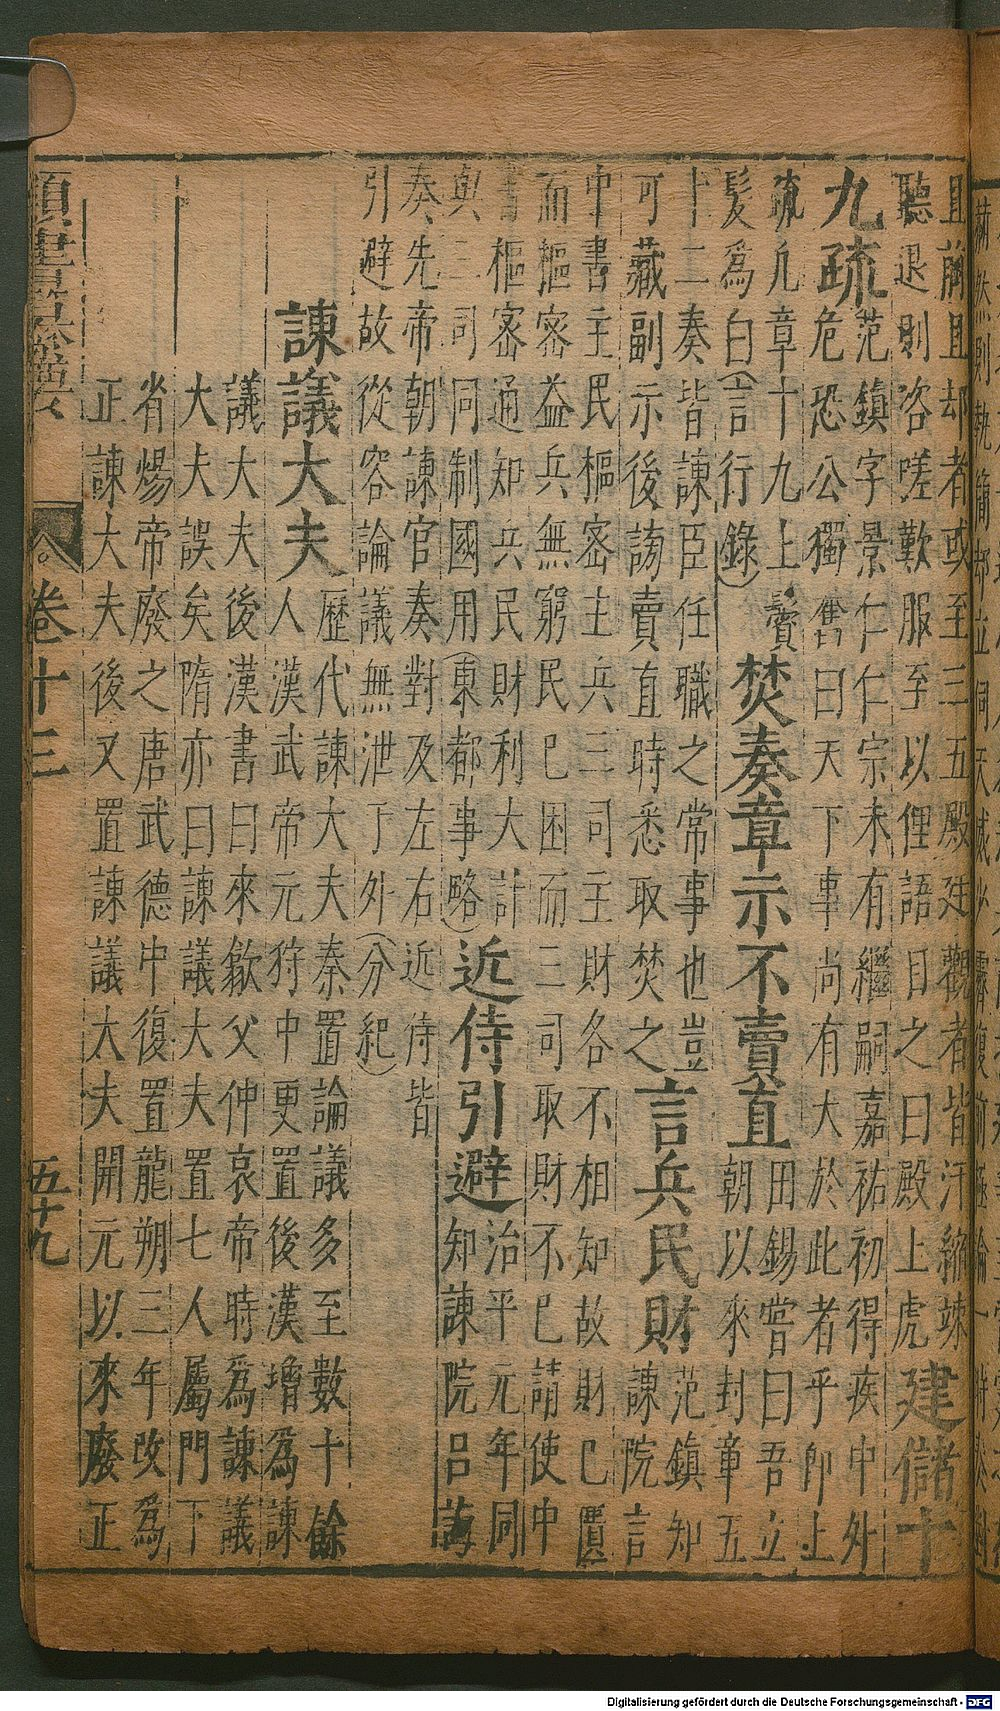 且前且却者或至三五殿廷觀者皆汗縮竦建儲十
聽退則咨嗟歎服至以俚語目之曰殿上虎
九疏范鎮字景仁仁宗未有繼嗣嘉祐初得疾中外
危恐公獨奮曰天下事尚有大於此者乎即上
疏凡章十九上鬢
髮為白(言行錄)焚奏章示不賣直田錫嘗曰吾立
朝以來封章五
十二奏皆諫臣任職之常事也豈
可藏副示後謗賣直時悉取焚之言兵民財范鎮知
諫院言
中書主民樞密主兵三司主財各不相知故財已匱
而樞密益兵無窮民已困而三司取財不已請使中
書樞密通知兵民財利大計
與三司同制國用(東都事略)近侍引避治平元年同
知諫院呂誨
奏先帝朝諫官奏對及左右近侍皆
引避故從容論議無泄于外(分紀)
諫議大夫歷代諫大夫秦置論議多至數十餘
人漢武帝元狩中更置後漢增為諫
議大夫後漢書曰來歙父仲哀帝時為諫議
大夫誤矣隋亦曰諫議大夫置七人屬門下
省煬帝廢之唐武德中復置龍朔三年改為
正諫大夫後又置諫議大夫開元以來廢正
卷十三
五十九
Digitalisierung gefördert durch die Deutsche Forschungsgemeinschaft - DFG